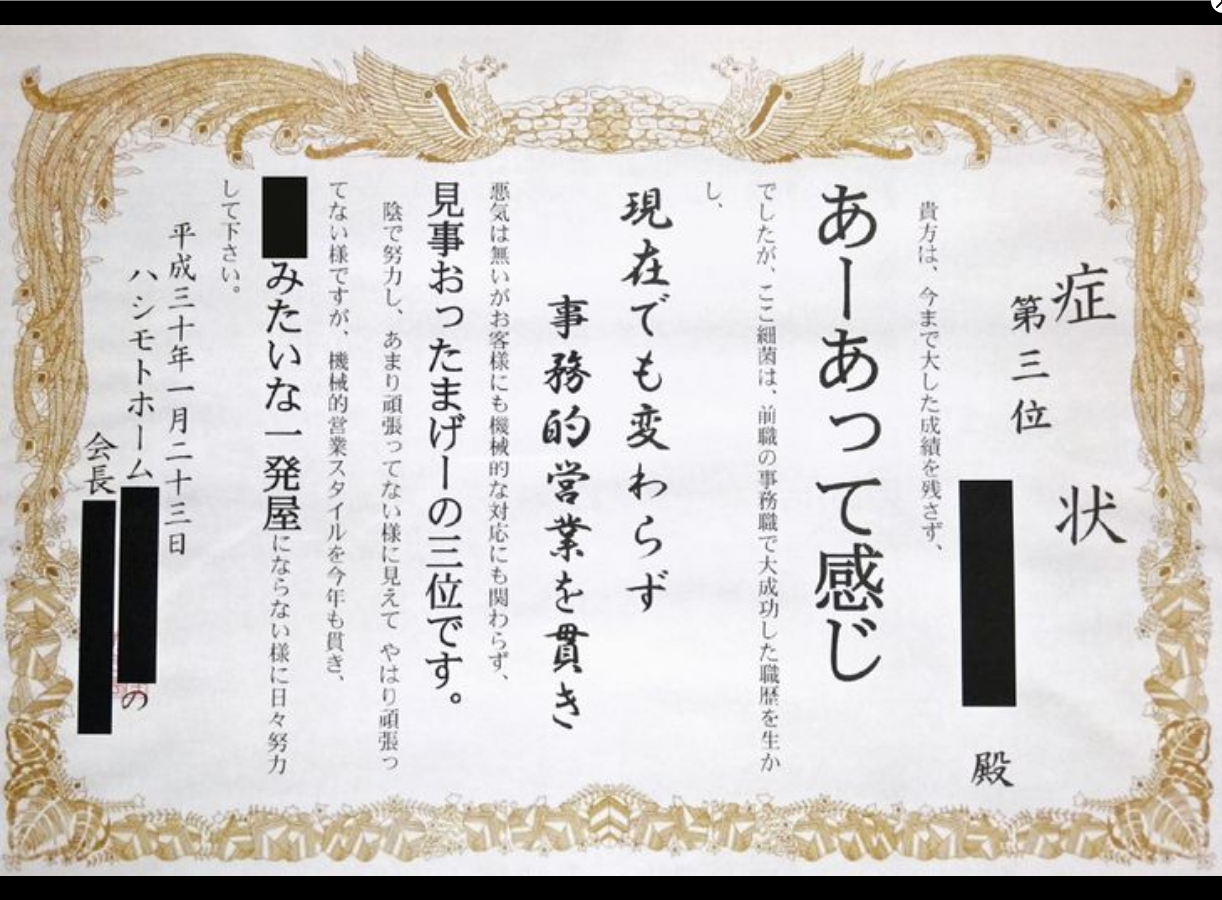 症状
第三位
殿
貴方は、今まで大した成績を残さず、
あーあって感じ
でしたが、ここ細菌は、前職の事務職で大成功した職歴を生か
し、
現在でも変わらず
事務的営業を貫き
悪気は無いがお客様にも機械的な対応にも関わらず、
見事おったまげーの三位です。
陰で努力し、あまり頑張ってない様に見えて やはり頑張っ
てない様ですが、機械的営業スタイルを今年も貫き、
みたいな一発屋にならない様に日々努力
して下さい。
平成三十年一月二十三日
ハシモトホーム
の
会長